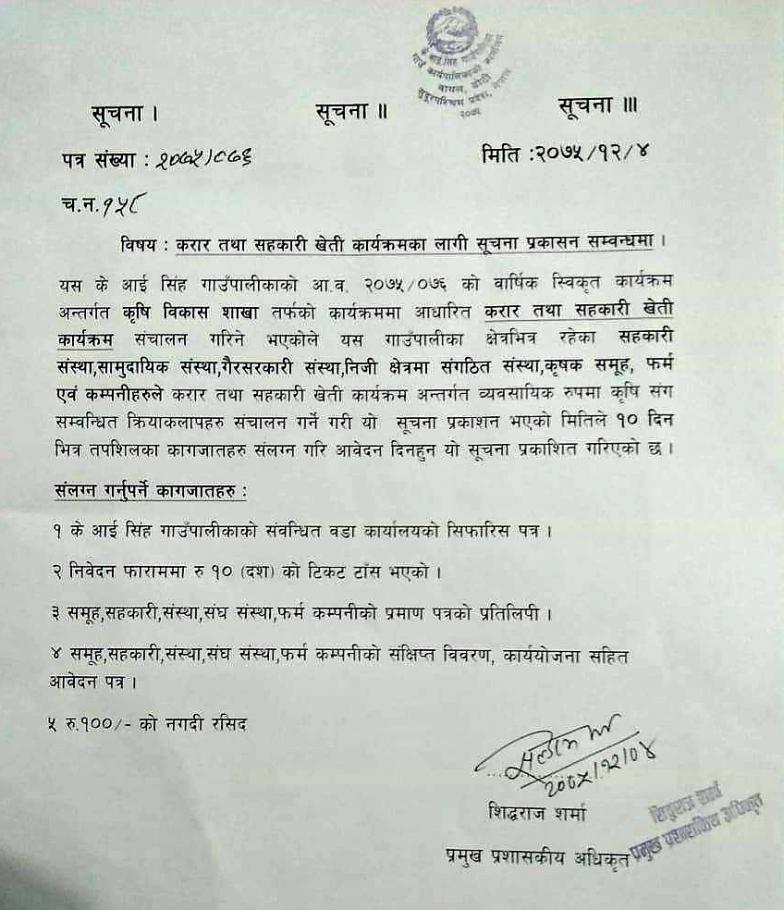 के आई सिंह गाउँपालिका
गाउँ कार्यपालिकाको कार्यालय
वायल, डोटी
सुदूरपश्चिम प्रदेश, नेपाल
२०७५
सूचना । सूचना ॥ सूचना ॥।
पत्र संख्या : २०७५/०७६ मिति :२०७५/१२/४
च.न.१५८
विषय : करार तथा सहकारी खेती कार्यक्रमका लागी सूचना प्रकासन सम्वन्धमा ।
यस के आई सिंह गाउँपालीकाको आ.व. २०७५/०७६ को वार्षिक स्विकृत कार्यक्रम
अन्तर्गत कृषि विकास शाखा तर्फको कार्यक्रममा आधारित करार तथा सहकारी खेती
कार्यक्रम संचालन गरिने भएकोले यस गाउँपालीका क्षेत्रभित्र रहेका सहकारी
संस्था,सामुदायिक संस्था,गैरसरकारी संस्था,निजी क्षेत्रमा संगठित संस्था,कृषक समूह, फर्म
एवं कम्पनीहरुले करार तथा सहकारी खेती कार्यक्रम अन्तर्गत व्यवसायिक रुपमा कृषि संग
सम्वन्धित क्रियाकलापहरु संचालन गर्ने गरी यो सूचना प्रकाशन भएको मितिले १० दिन
भित्र तपशिलका कागजातहरु संलग्न गरि आवेदन दिनहुन यो सूचना प्रकाशित गरिएको छ ।
संलग्न गर्नुपर्ने कागजातहरु :
१ के आई सिंह गाउँपालीकाको संवन्धित वडा कार्यालयको सिफारिस पत्र ।
२ निवेदन फाराममा रु १० (दश) को टिकट टाँस भएको ।
३ समूह,सहकारी,संस्था,संघ संस्था,फर्म कम्पनीको प्रमाण पत्रको प्रतिलिपी ।
४ समूह,सहकारी,संस्था,संघ संस्था,फर्म कम्पनीको संक्षिप्त विवरण, कार्ययोजना सहित
आवेदन पत्र ।
५ रु.१००/- को नगदी रसिद
२०७५/१२/०४
शिद्धराज शर्मा
प्रमुख प्रशासकीय अधिकृत
सिद्धराज शर्मा
प्रमुख प्रशासकिय अधिकृत